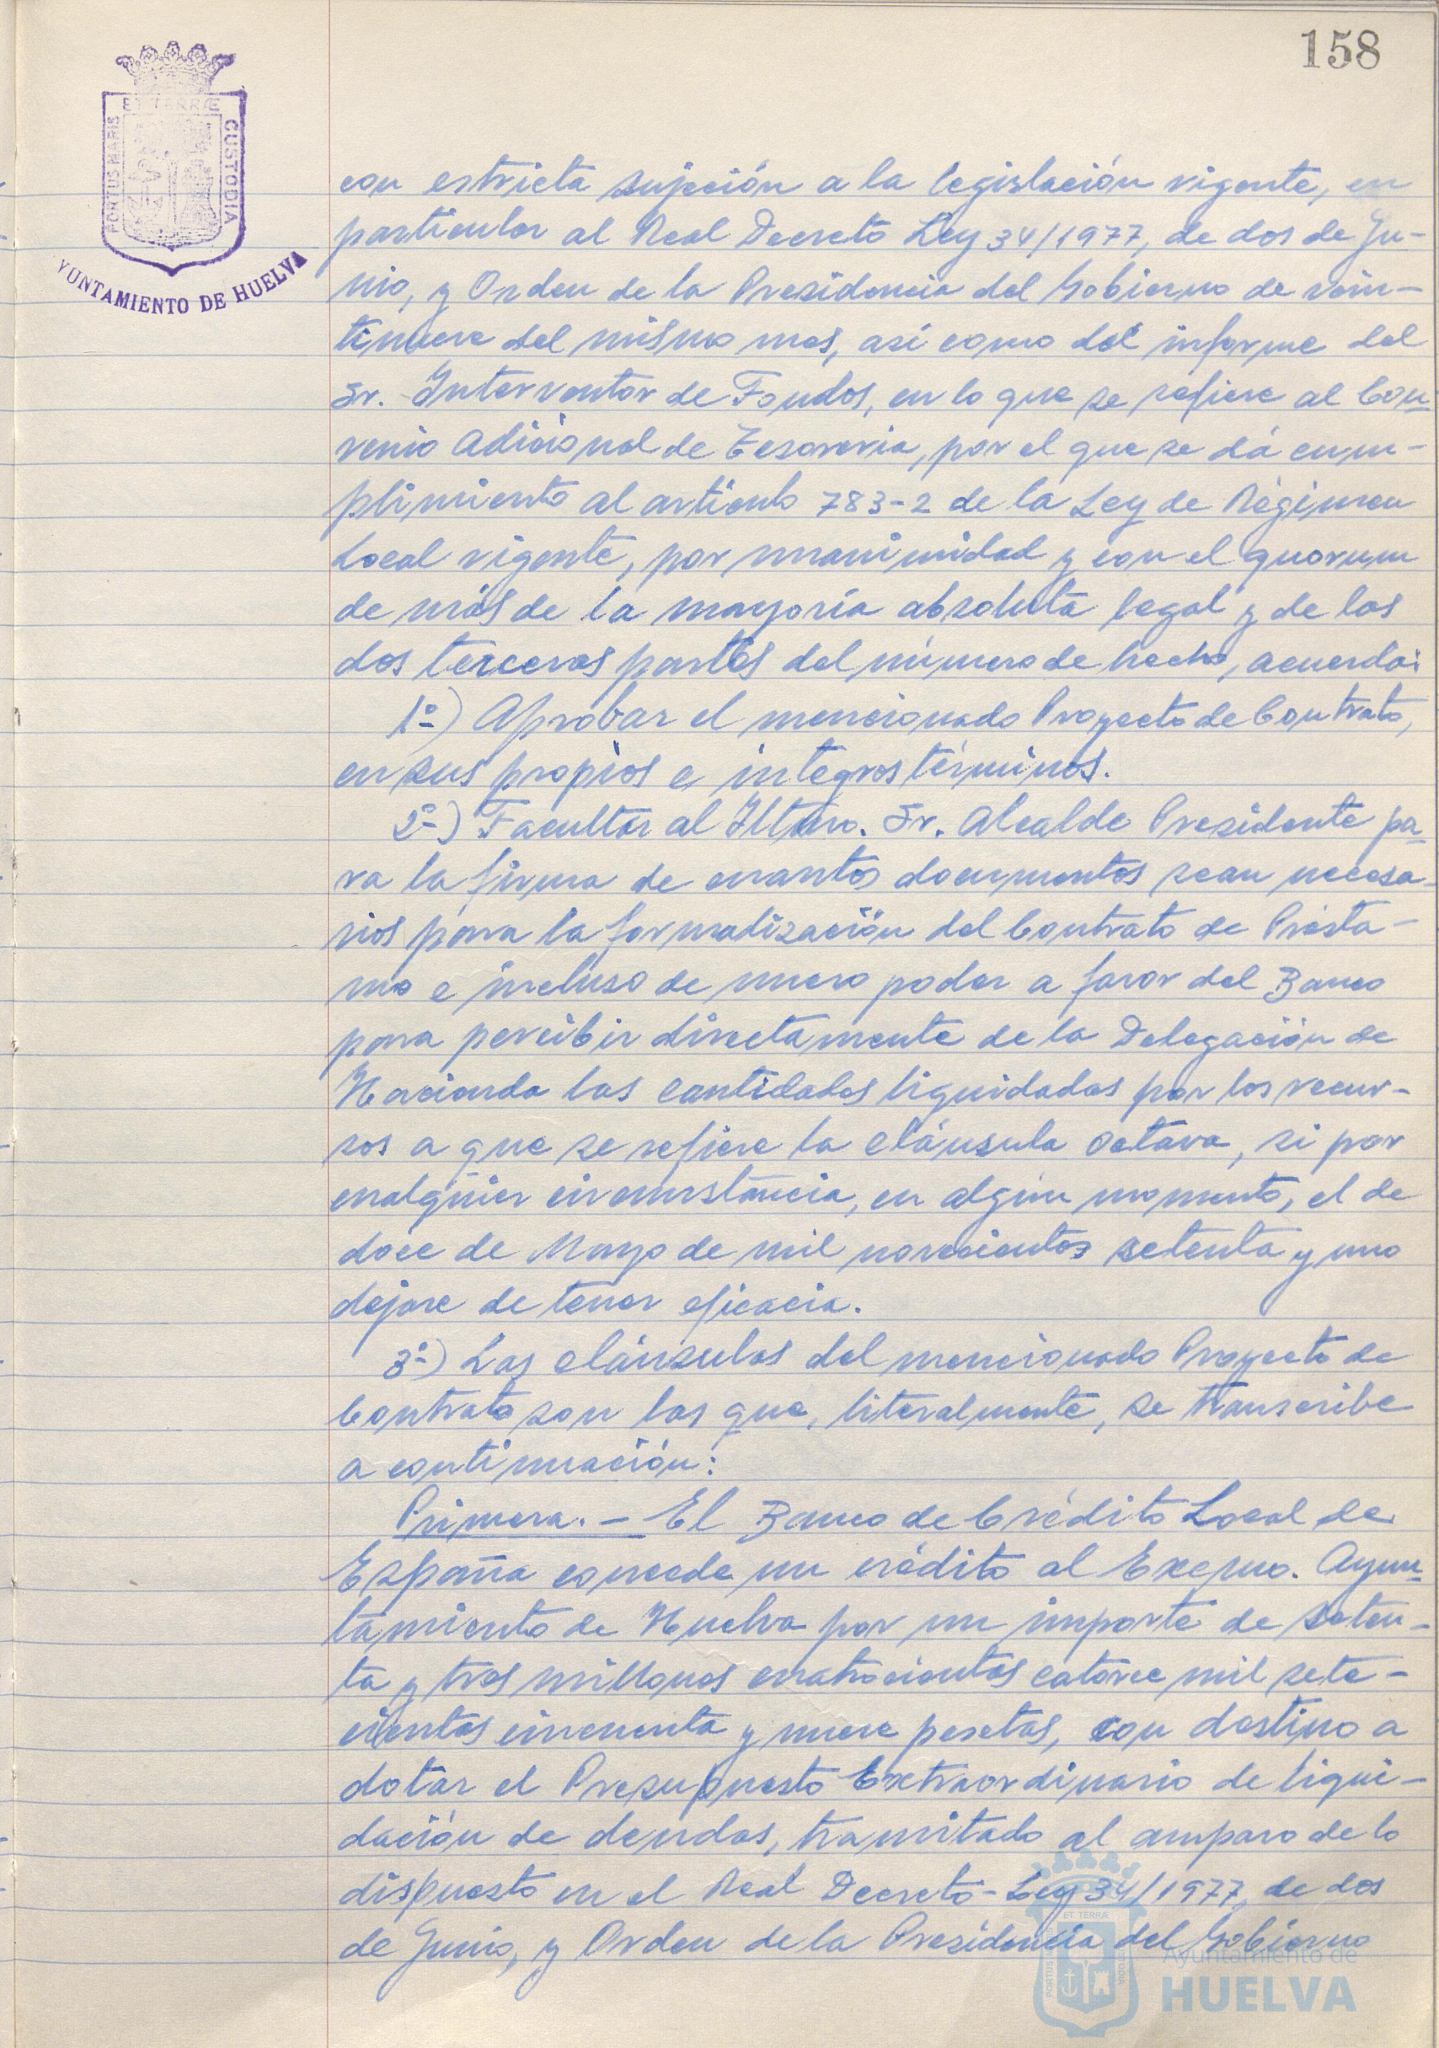 158
ET TERRÆ
PORTUS MARIS
CUSTODIA
YUNTAMIENTO DE HUELVA
con estricta sujeción a la legislación vigente, en
particular al Real Decreto Ley 34/1977, de dos de Ju-
nio, y Orden de la Presidencia del Gobierno de vein-
tinueve del mismo mes, así como del informe del
Sr. Interventor de Fondos, en lo que se refiere al Con-
venio Adicional de Tesoreria, por el que se dá cum-
plimiento al artículo 783-2 de la Ley de Régimen
Local vigente, por unanimidad y con el quorum
de más de la mayoría absoluta legal y de las
dos terceras partes del número de hecho, acuerda:
1º-) Aprobar el mencionado Proyecto de Contrato,
en sus propios e integros términos.
2º-) Facultar al Iltmo. Sr. Alcalde Presidente pa-
ra la firma de cuantos documentos sean necesa-
rios para la formalización del Contrato de Présta-
mo e incluso de nuevo poder a favor del Banco
para percibir directamente de la Delegación de
Hacienda las cantidades liquidadas por los recur-
sos a que se refiere la cláusula octava, si por
cualquier circunstancia, en algún momento, el de
doce de Mayo de mil novecientos setenta y uno
dejare de tener eficacia.
3º-) Las cláusulas del mencionado Proyecto de
Contrato son las que, literalmente, se transcribe
a continuación:
Primera.- El Banco de Crédito Local de
España concede un crédito al Excmo. Ayun-
tamiento de Huelva por un importe de seten-
ta y tres millones cuatrocientas catorce mil sete-
cientas cincuenta y nueve pesetas, con destino a
dotar el Presupuesto Extraordinario de liqui-
dación de deudas, tramitado al amparo de lo
dispuesto en el Real Decreto-Ley 34/1977, de dos
de Junio, y Orden de la Presidencia del Gobierno
ET TERRÆ
PORTUS
CUSTODIA
Ayuntamiento de
HUELVA